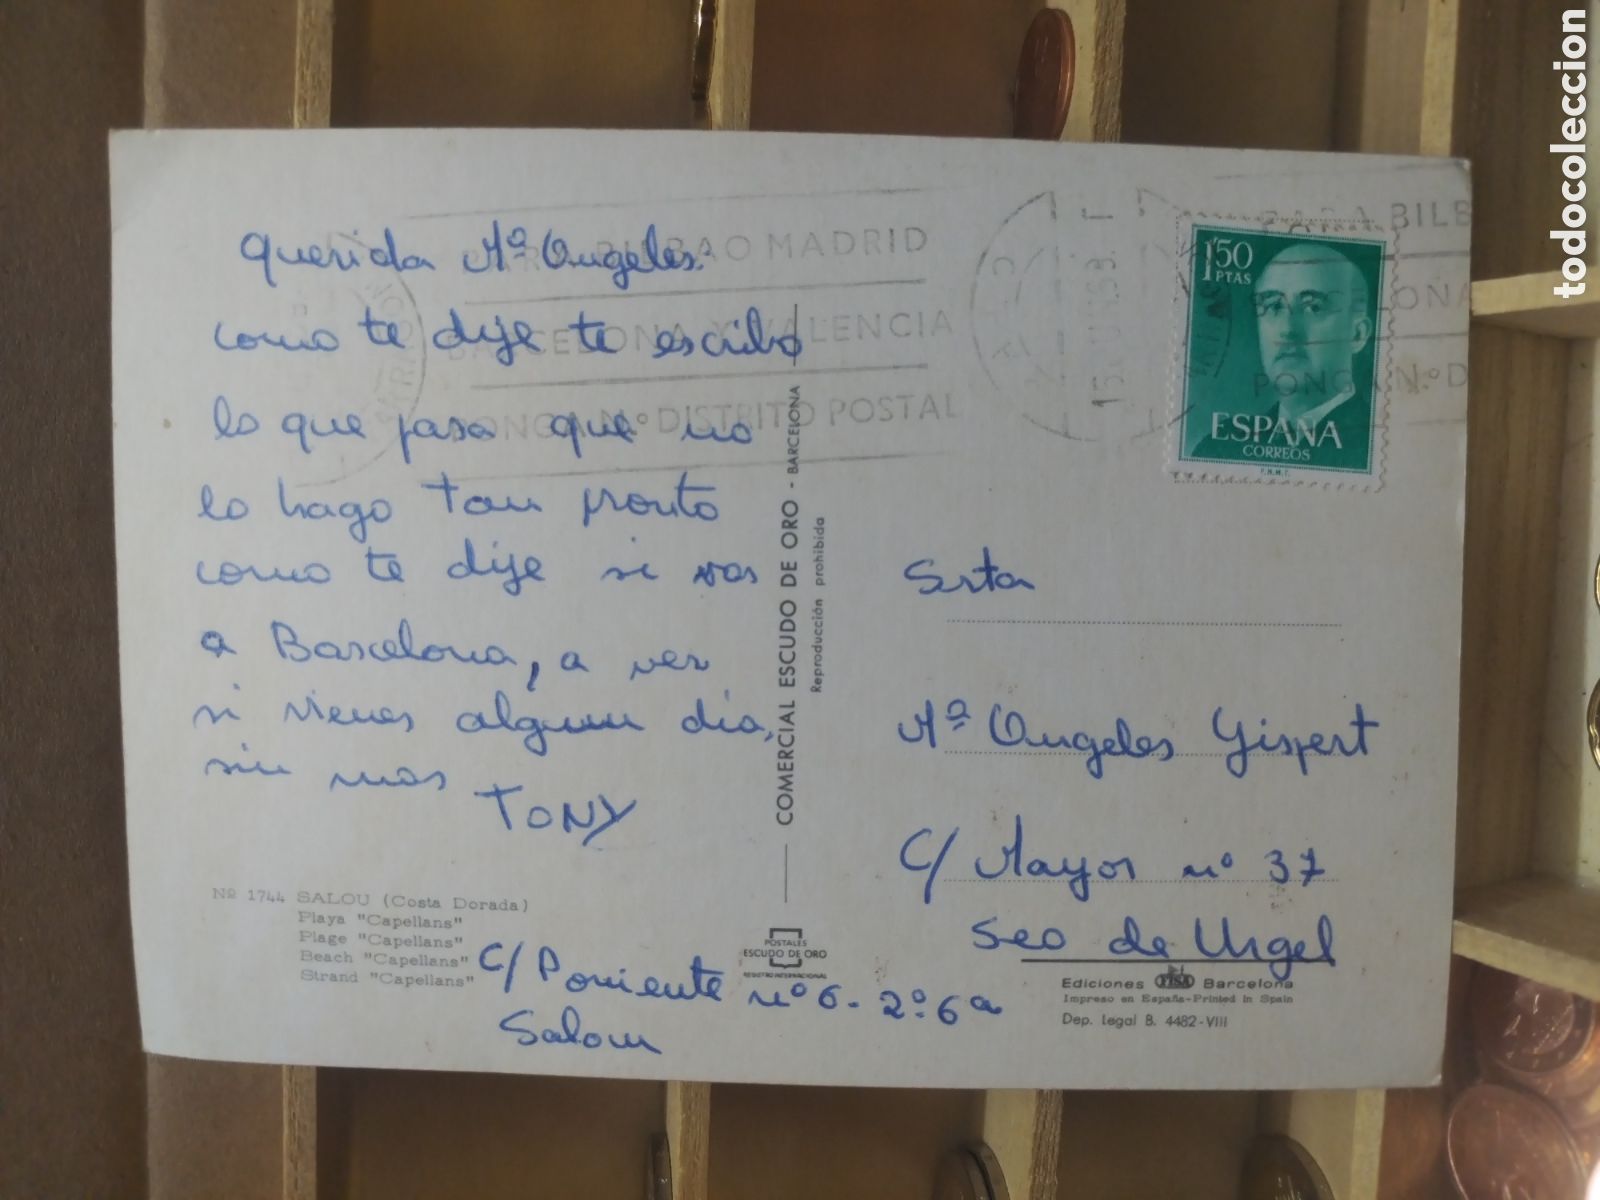 querida Mª Angeles:
como te dije te escribo
lo que pasa que no
lo hago tan pronto
como te dije si vas
a Barcelona, a ver
si vienes algun dia,
sin mas
TONY
Nº 1744 SALOU (Costa Dorada)
Playa "Capellans"
Plage "Capellans"
Beach "Capellans"
Strand "Capellans"
C/ Poniente nº 6 - 2º 6ª
Salou
COMERCIAL ESCUDO DE ORO - BARCELONA
Reproducción prohibida
POSTALES
ESCUDO DE ORO
REGISTRO INTERNACIONAL
BILBAO MADRID
BARCELONA Y VALENCIA
PONGA N.º DISTRITO POSTAL
PARA BILB
BARCELONA
PONGA N.º D
1'50
PTAS
ESPAÑA
CORREOS
F.N.M.T.
Srta
Mª Angeles Gispert
C/ Mayor nº 37
Seo de Urgel
Ediciones FISA Barcelona
Impreso en España-Printed in Spain
Dep. legal B. 4482-VIII
todocoleccion